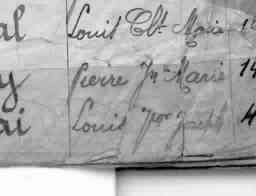 al Louis Cbt Marie 1
y Pierre Jn Marie 14
ai Louis Joseph 4